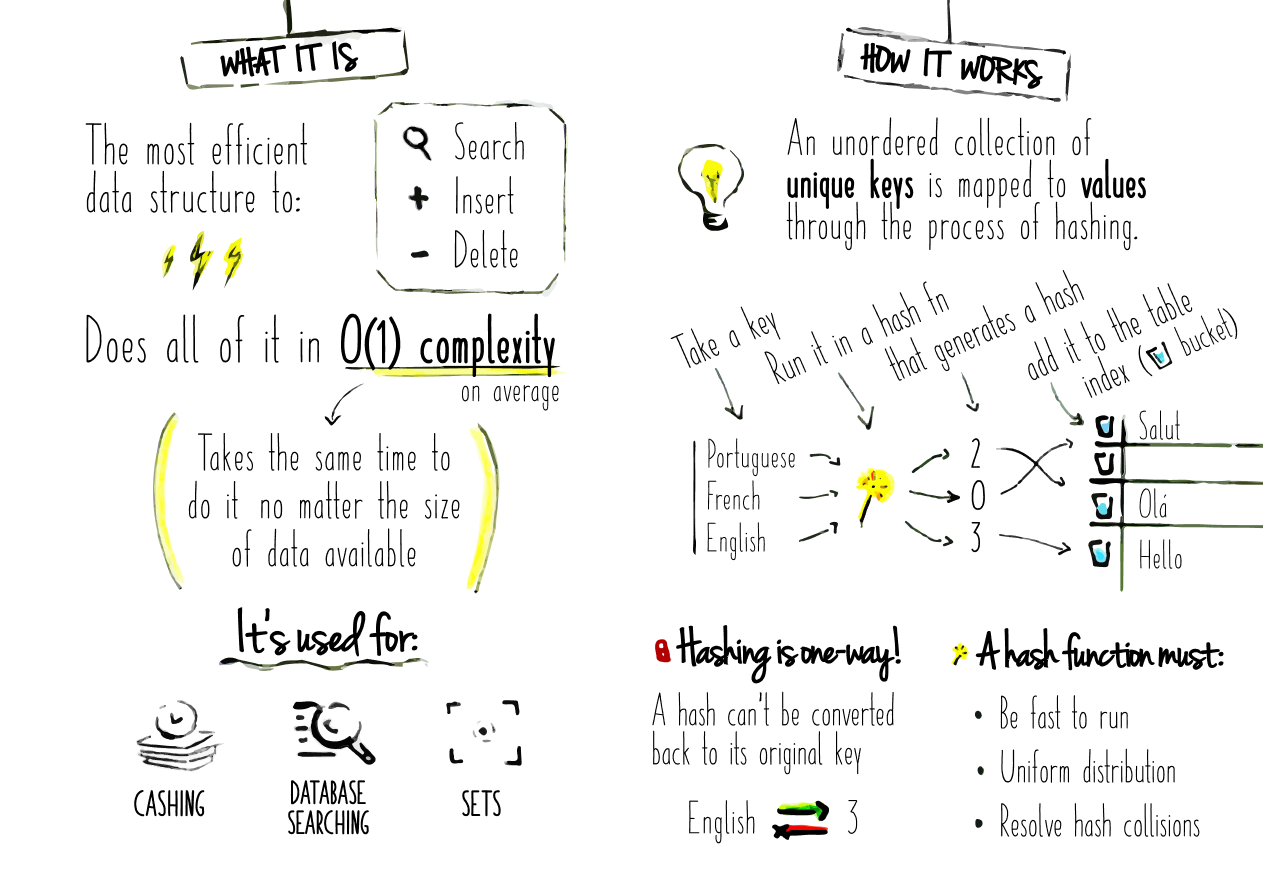 WHAT IT IS
The most efficient
data structure to:
Search
+ Insert
- Delete
Does all of it in O(1) complexity
on average
Takes the same time to
do it no matter the size
of data available
It's used for:
CASHING
DATABASE
SEARCHING
SETS
HOW IT WORKS
An unordered collection of
unique keys is mapped to values
through the process of hashing.
Take a key
Run it in a hash fn
that generates a hash
add it to the table
index ( bucket)
Portuguese
French
English
2
0
3
Salut
Olá
Hello
Hashing is one-way!
A hash can't be converted
back to its original key
English 3
A hash function must:
• Be fast to run
• Uniform distribution
• Resolve hash collisions